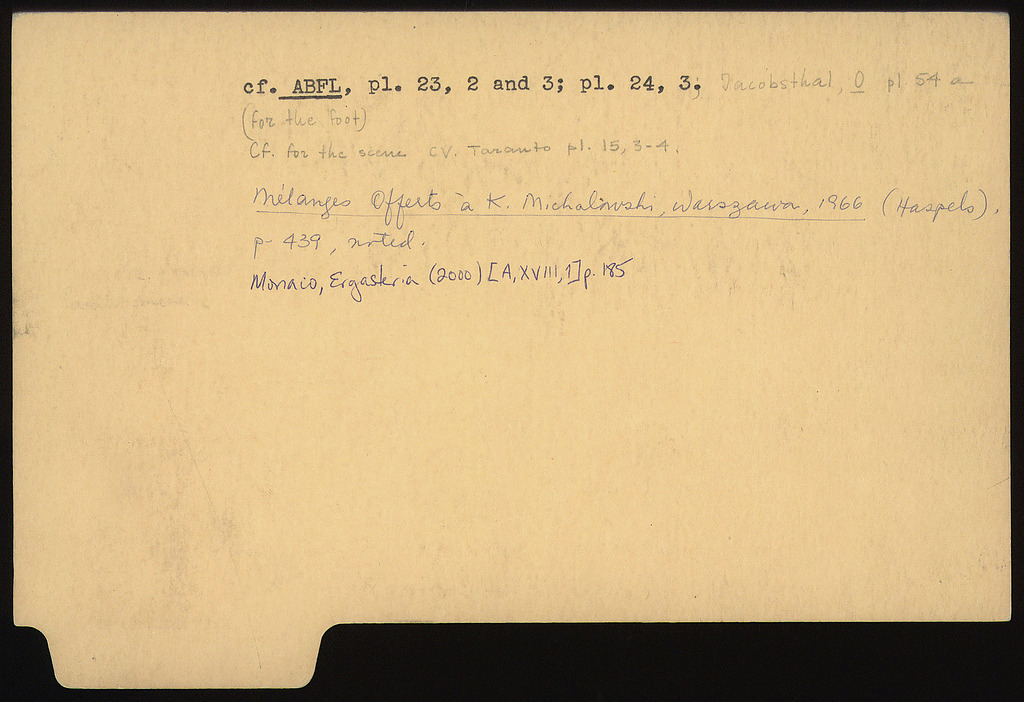 cf. ABFL, pl. 23, 2 and 3; pl. 24, 3; Jacobsthal, O pl 54 a
(for the foot)
Cf. for the scene CV. Taranto pl. 15, 3-4.
Mélanges Offerts à K. Michalowski, Warszawa, 1966 (Haspels),
p. 439, noted.
Monaco, Ergasteria (2000) [A, XVIII, 1] p. 185